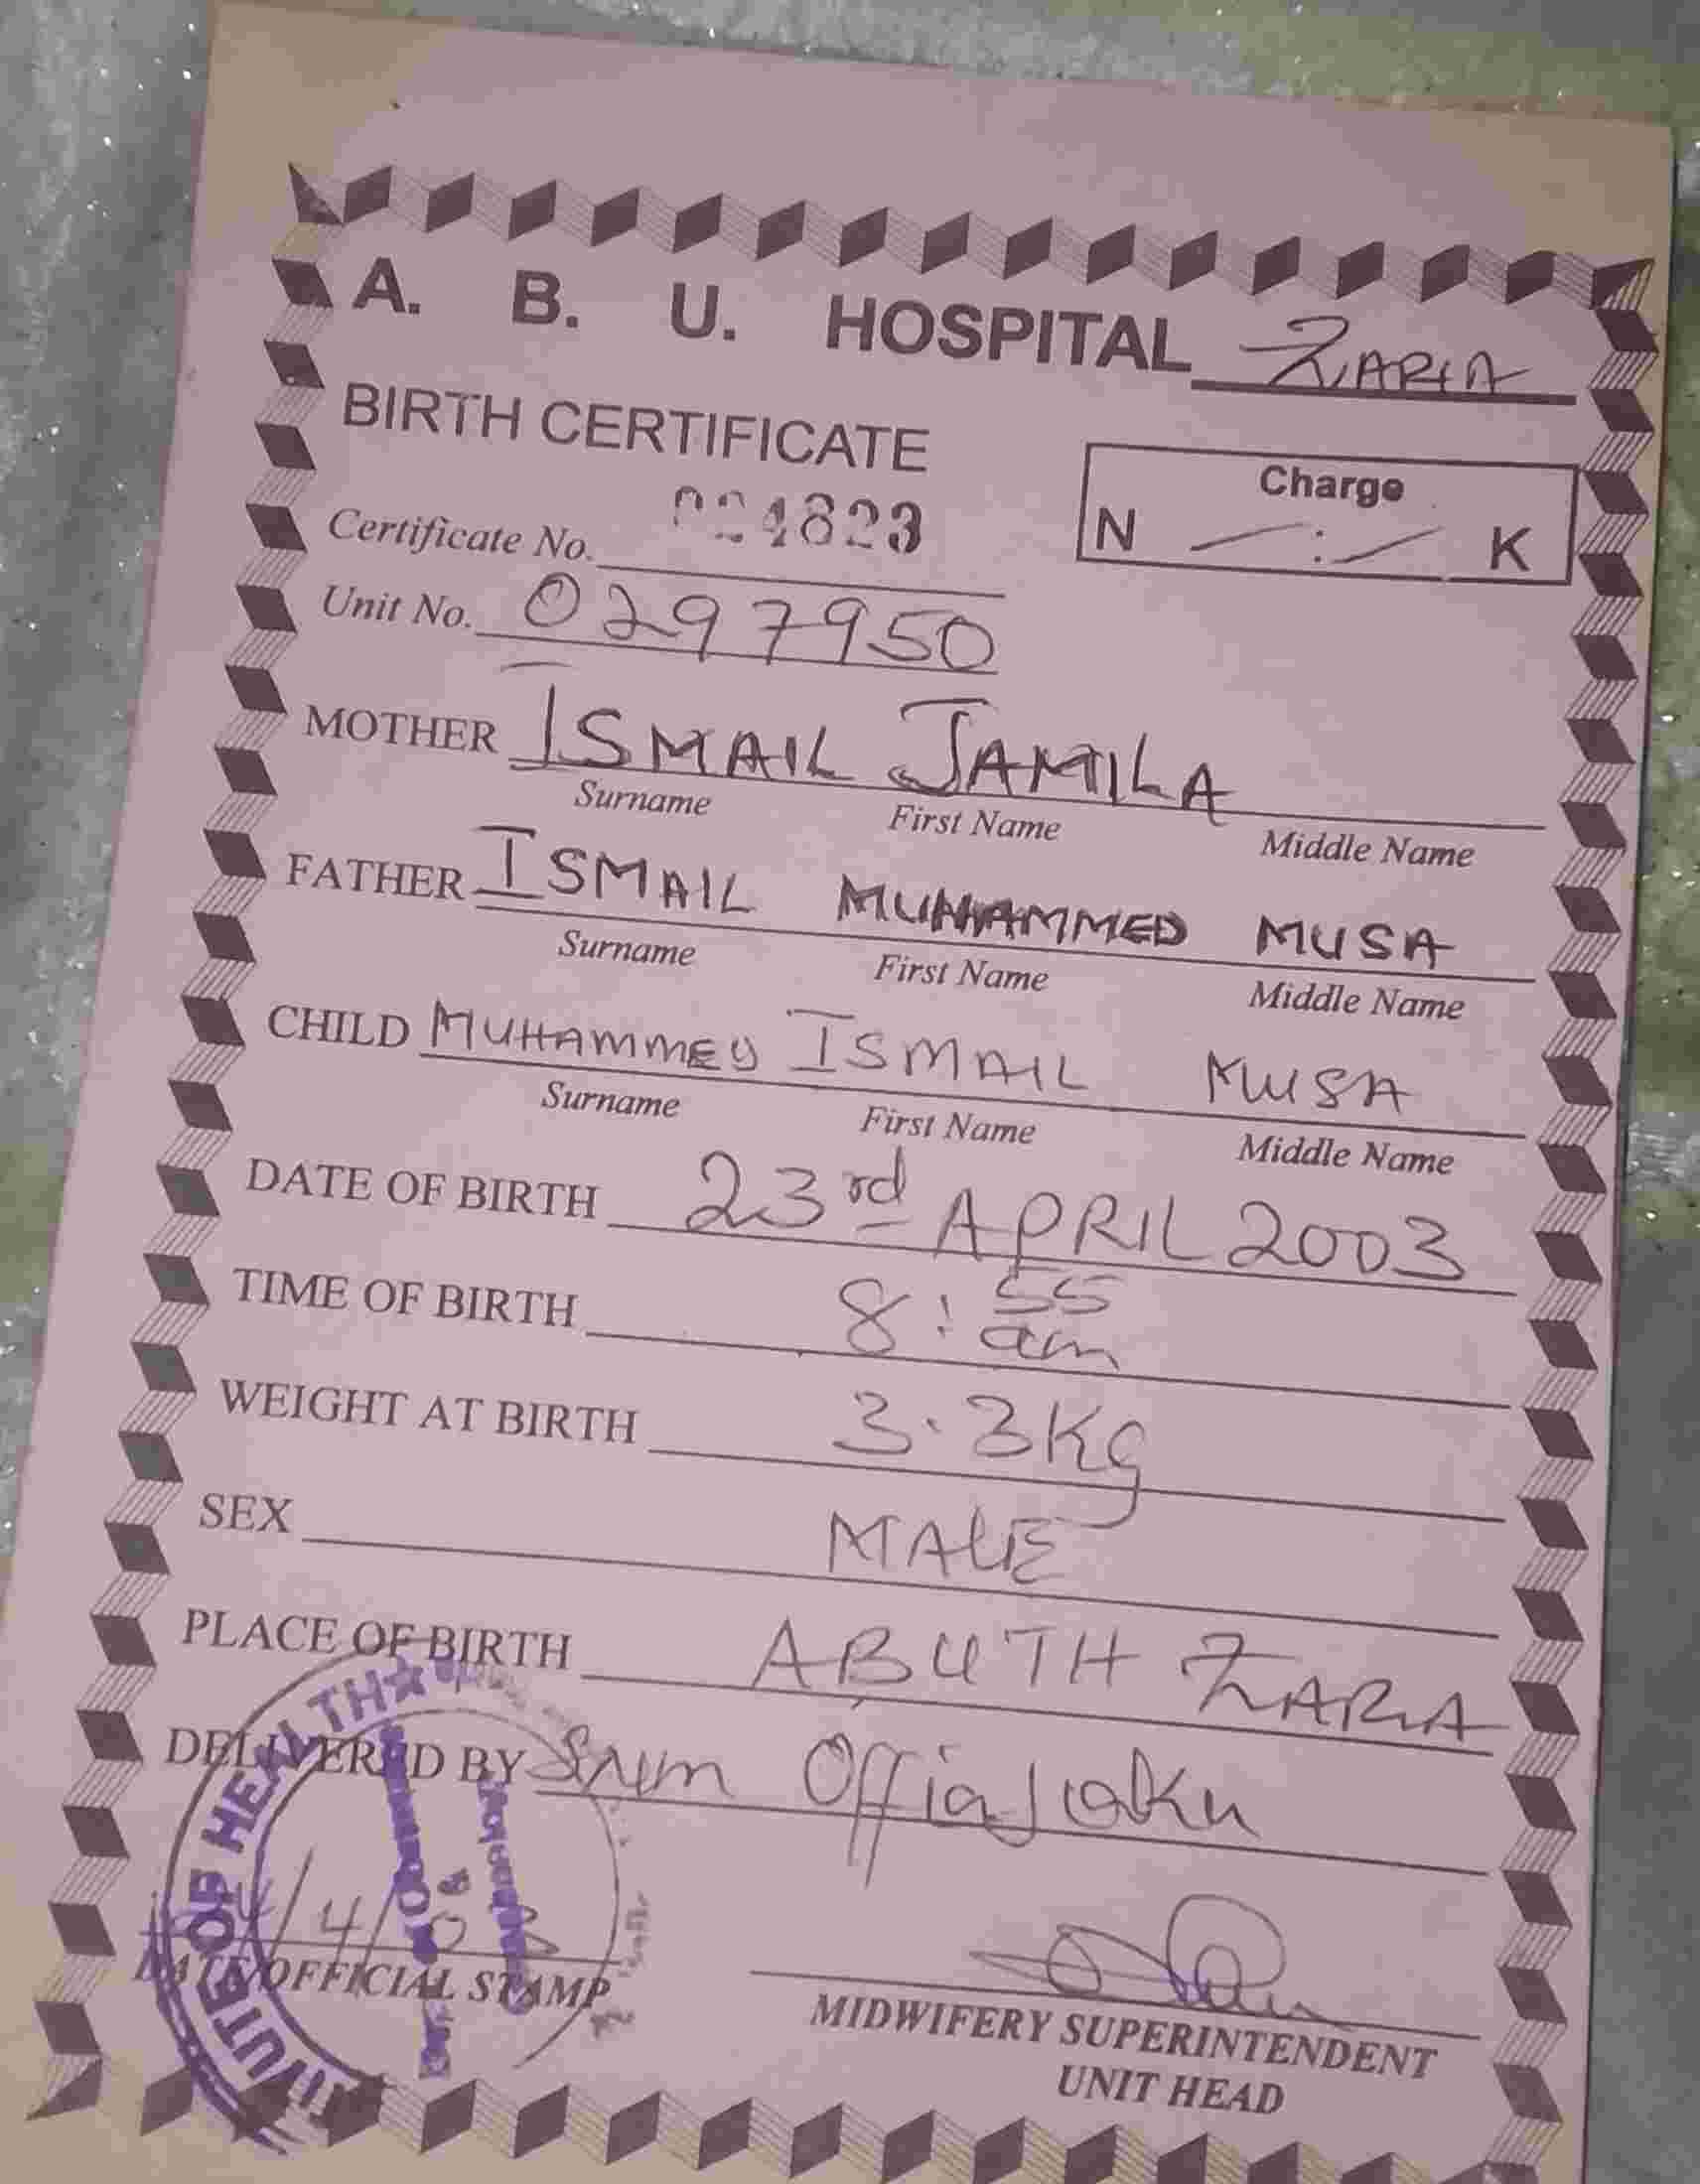 A. B. U. HOSPITAL ZARIA
BIRTH CERTIFICATE
Charge
N -:- K
Certificate No. 024823
Unit No. 0297950
MOTHER ISMAIL JAMILA
Surname First Name Middle Name
FATHER ISMAIL MUHAMMED MUSA
Surname First Name Middle Name
CHILD MUHAMMED ISMAIL MUSA
Surname First Name Middle Name
DATE OF BIRTH 23rd APRIL 2003
TIME OF BIRTH 8:55 am
WEIGHT AT BIRTH 3.3Kg
SEX MALE
PLACE OF BIRTH ABUTH ZARIA
DELIVERED BY
OF HEALTH
DATE/OFFICIAL STAMP
MIDWIFERY SUPERINTENDENT
UNIT HEAD